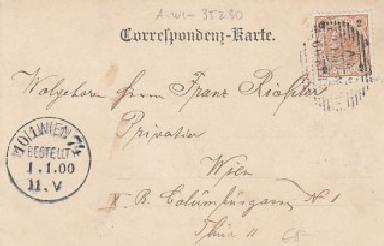 A-wi- 35230
Correspondenz-Karte.
2 2
Wolgeborn Herrn Franz Richter
Privatier
Wien
II. B. Columbusgasse N. 1
Thür 11
MÖLLWIEN 74
BESTELLT
1.1.00
11.V